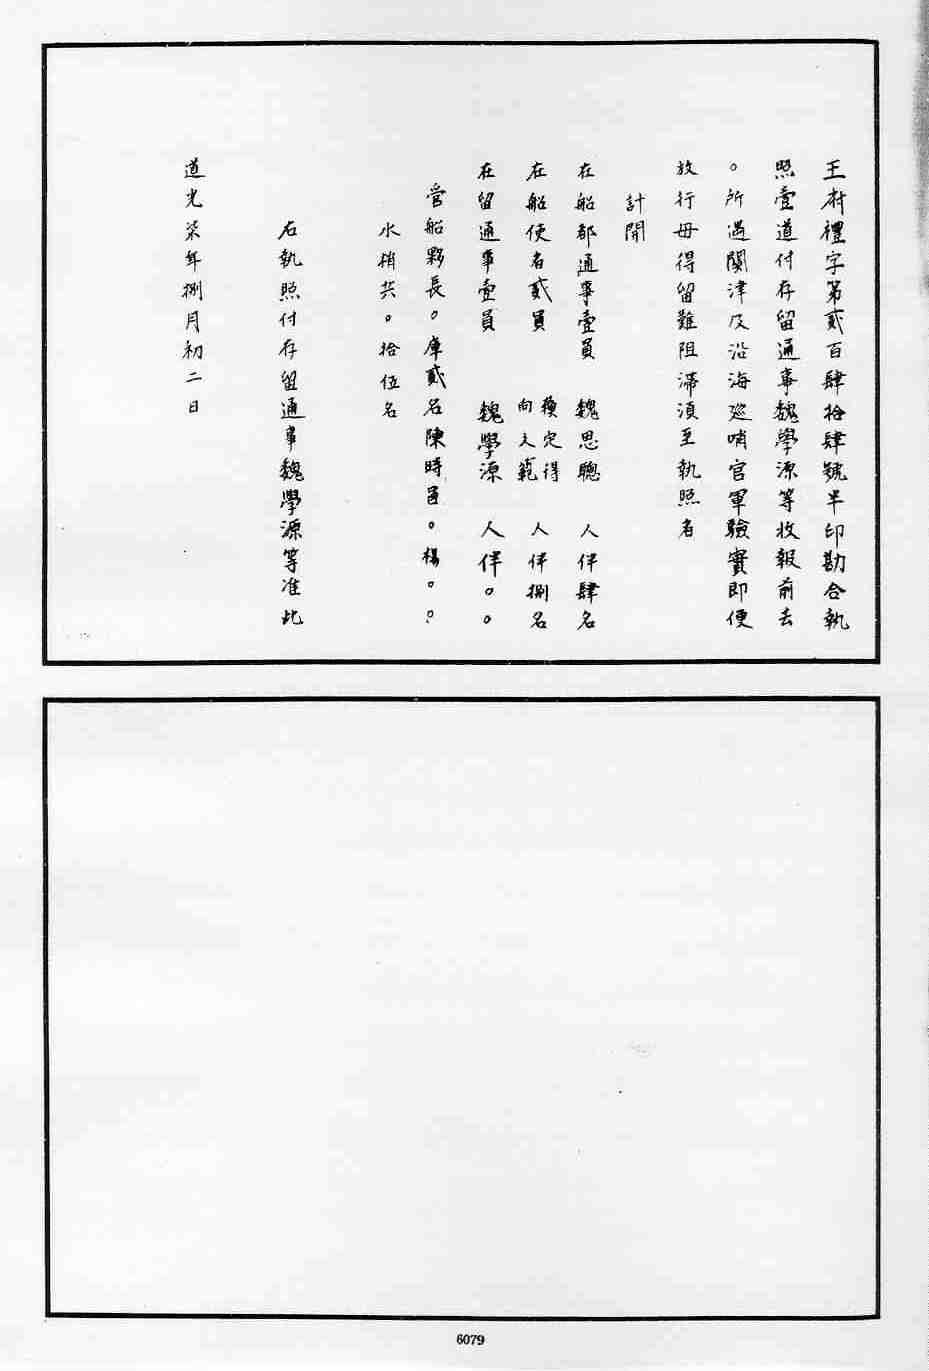 王府禮字第貳百肆拾肆號半印勘合執
照壹道付存留通事魏學源等收報前去
。所遇關津及沿海巡哨官軍驗實即便
放行毋得留難阻滯須至執照者
計開
在船都通事壹員 魏思聰 人伴肆名
在船使者貳員 穆定得 向文範 人伴捌名
在留通事壹員 魏學源 人伴。。
管船夥長。庫貳名陳時邑。楊。。
水梢共。拾伍名
右執照付存留通事魏學源等准此
道光柒年捌月初二日
6079